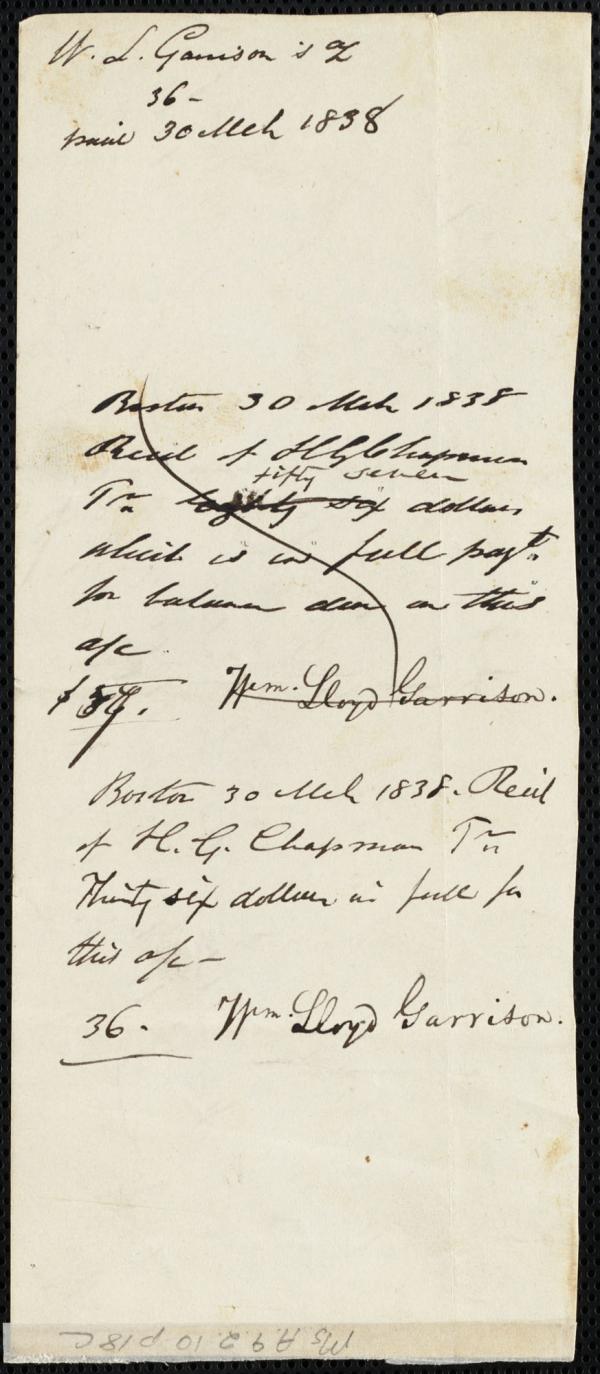 W. L. Garrison's
36 -
paid 30 Mch 1838
Boston 30 Mch 1838
Recd of H G Chapman
fifty seven
Trr eighty six dollars
which is in full payt.
for balance due on this
a/c
$57.
Wm. Lloyd Garrison.
Boston 30 Mch 1838. Recd
of H. G. Chapman Trr
Thirty six dollars in full for
this a/c -
36.
Wm. Lloyd Garrison.
Ms A.9.2.10 p18C